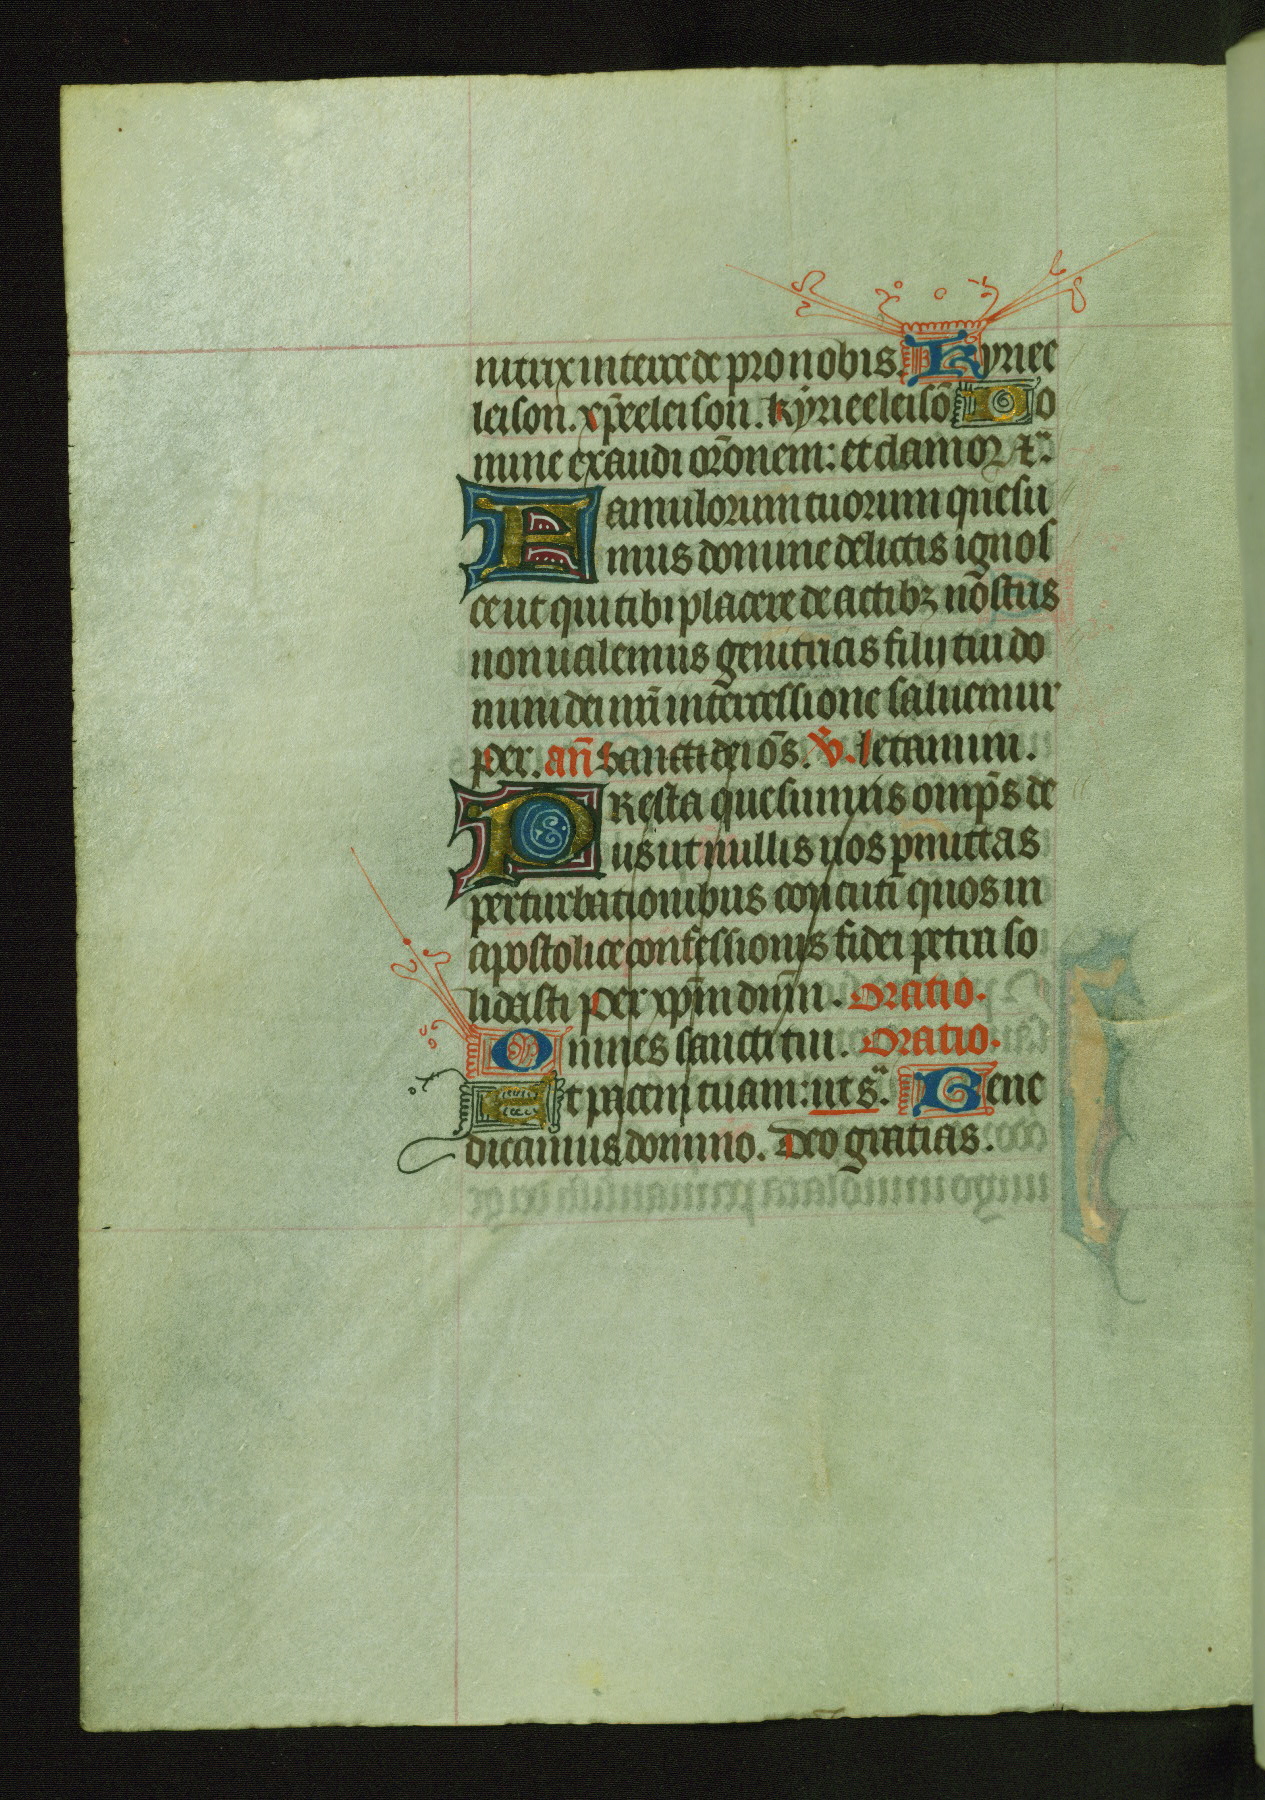 nitrix intercede pro nobis. Kyriee
leison. xp̄eeleison. kyrieeleisō Do
mine exaudi or̄onem: et clamor ⁊c̈.
Famulorum tuorum quesu
mus domine delictis ignos
ce ut qui tibi placere de actibꝫ nōstris
non ualemus genitricis filij tui do
mini dei nr̄i intercessione saluemur
per. an̄ Sancti dei ōs. v̄. letamini.
PResta quesumus omp̄s de
us ut nullis nos p̄mittas
perturbationibus concuti quos in
apostolice confessionis fidei petra so
lidasti per xp̄m dn̄m. Oratio.
Omnes sancti tui. Oratio.
Et pacem tuam: ut s̈. Bene
dicamus domino. Deo gratias.